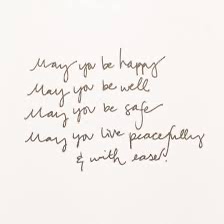 May you be happy
May you be well
May you be safe
May you live peacefully
& with ease.